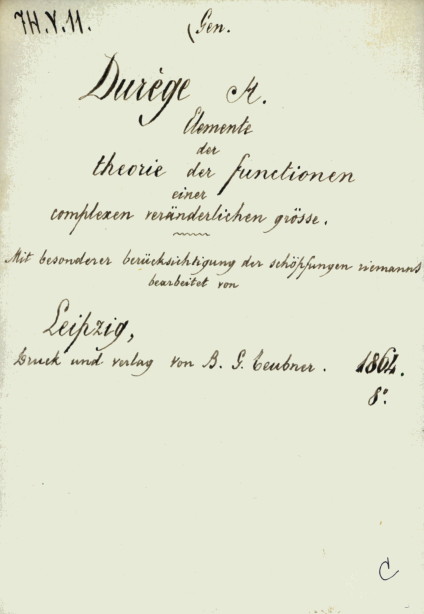 74.V.11.
(Gen.
Durège H.
Elemente
der
theorie der functionen
einer
complexen veränderlichen grösse.
Mit besonderer berücksichtigung der schöpfungen riemanns
bearbeitet von
Leipzig,
Druck und verlag von B. G. Teubner. 1864.
8°.
C